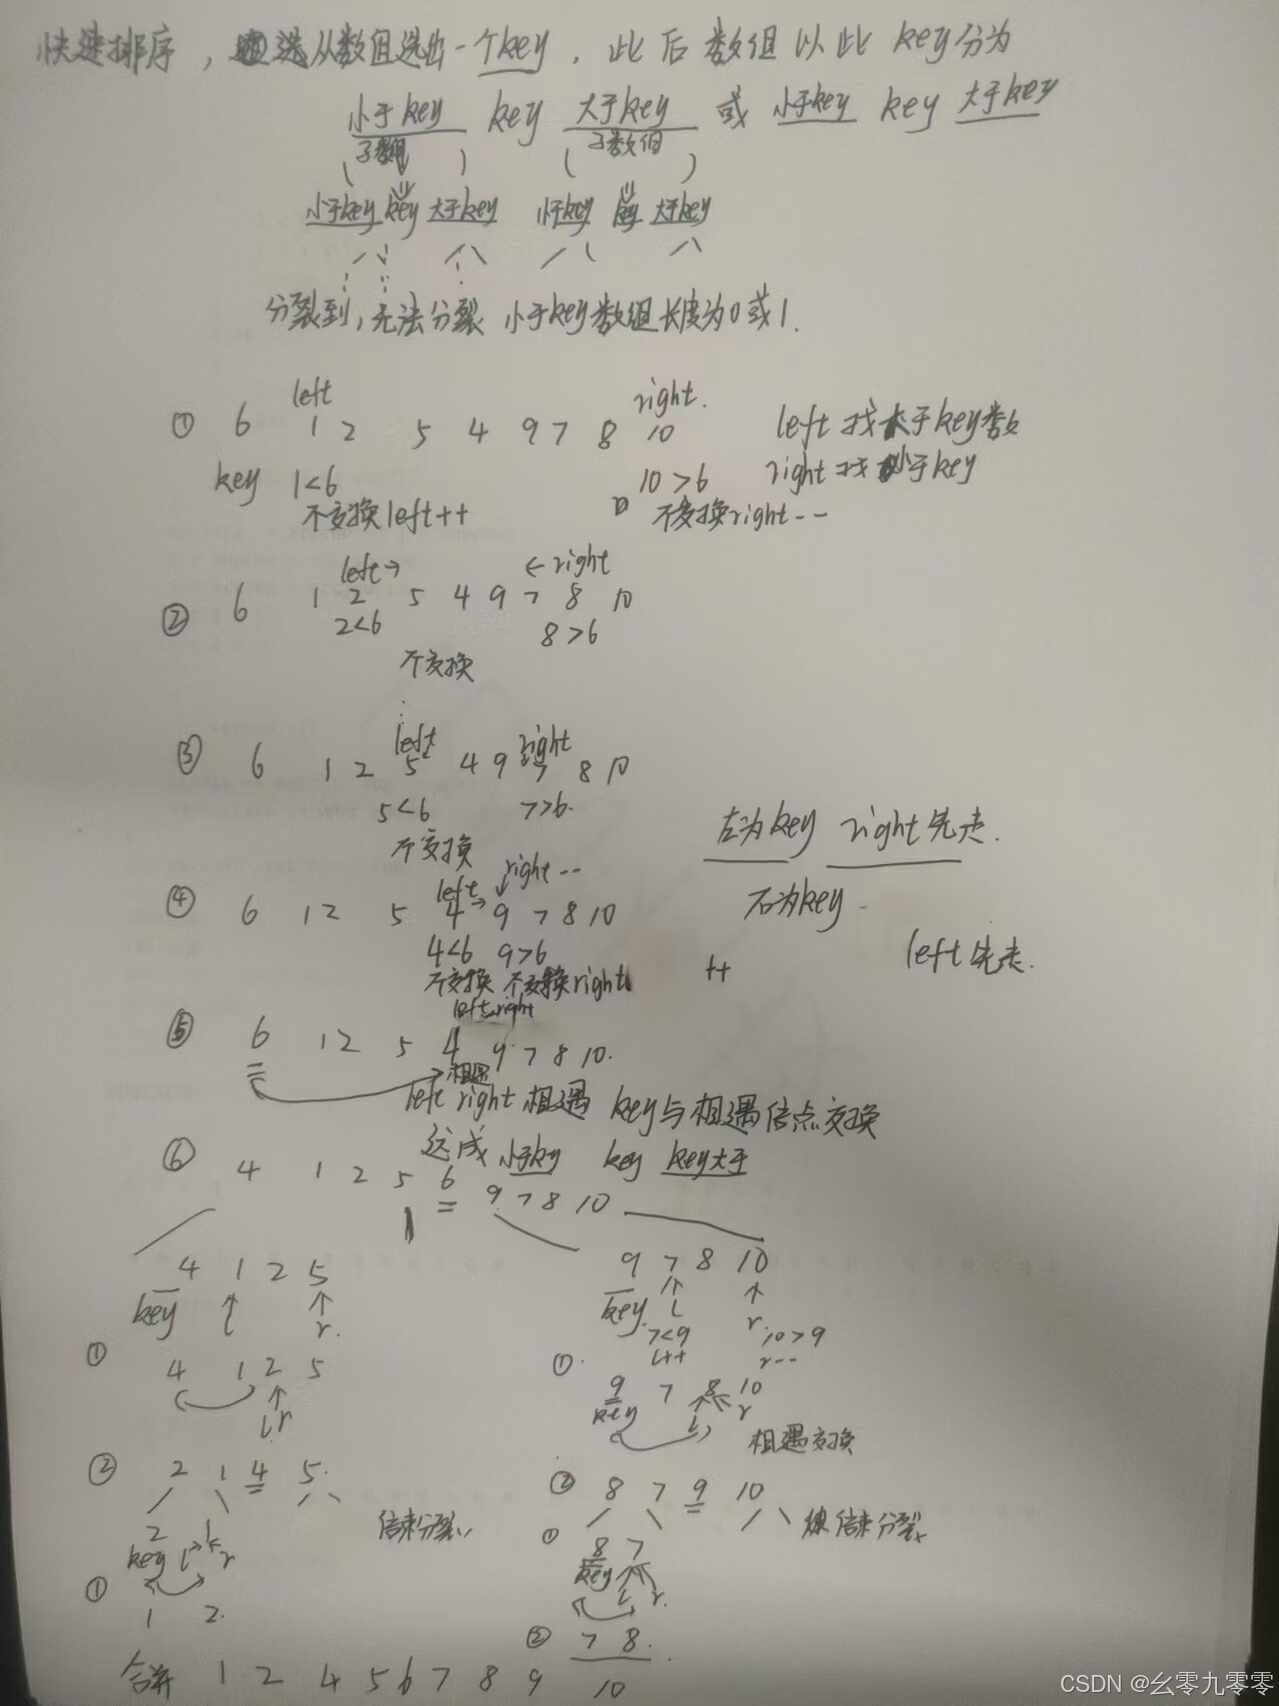 快速排序，选从数组选出一个key，此后数组以此key分为
小于key key 大于key 或 小于key key 大于key
子数组 子数组
小于key key 大于key 小于key key 大于key
分裂到，无法分裂 小于key数组长度为0或1.
left right.
① 6 1 2 5 4 9 7 8 10 left找大于key数
key 1<6 10>6 right找小于key
不交换left++ 不交换right--
left→ ←right
② 6 1 2 5 4 9 7 8 10
2<6 8>6
不交换
left right
③ 6 1 2 5 4 9 7 8 10
5<6 7>6.
不交换
左为key right先走.
left→ right--
④ 6 1 2 5 4 9 7 8 10
右为key
4<6 9>6
left先走.
不交换 不交换right
++
left right
⑤ 6 1 2 5 4 9 7 8 10.
相遇
left right相遇 key与相遇位点交换
达成 小于key key key大于
⑥ 4 1 2 5 6 9 7 8 10
4 1 2 5 9 7 8 10
key l r. key l r.
7<9 10>9
l++ r--
① 4 1 2 5 ①
l r
9 7 8 10
key l r
相遇交换
② 2 1 4 5. ② 8 7 9 10
结束分裂 结束分裂
2 1 ① 8 7
key l r key l r.
① 1 2.
② 7 8.
合并 1 2 4 5 6 7 8 9 10
CSDN @幺零九零零